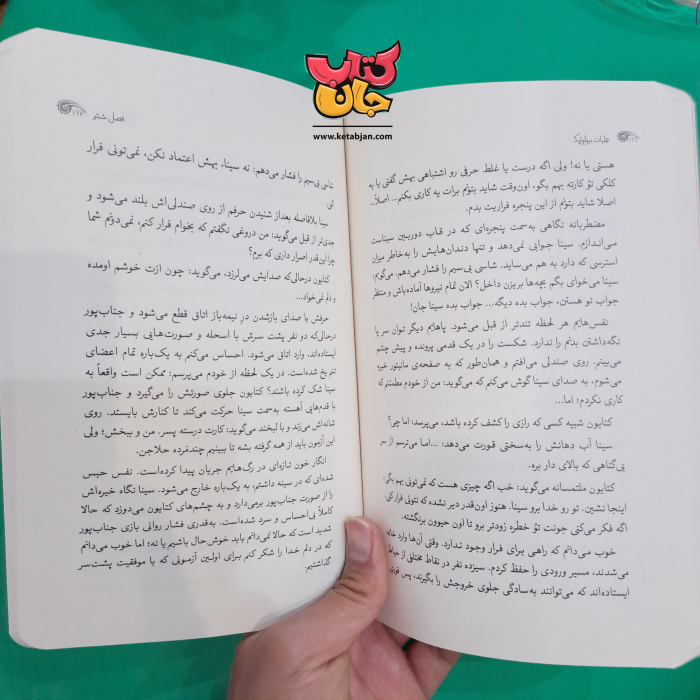 کتاب
جان
www.ketabjan.com
هستی یا نه! ولی اگه درست یا غلط حرفی رو اشتباهی بهش گفتی یا به
کلکی تؤ کارته بهم بگو، اون‌وقت شاید بتونم برات یه کاری بکنم... اصلاً...
اصلا شاید بتونم از این پنجره فراریت بدم.
مضطربانه نگاهی به‌سمت پنجره‌ای که در قاب دوربین سیناست
می‌اندازم. سینا جوابی نمی‌دهد و تنها دندان‌هایش را به‌خاطر میزان
استرسی که دارد به هم می‌ساید. شاسی بی‌سیم را فشار می‌دهم. می‌گویم:
سینا می‌خوای بگم بچه‌ها بریزن داخل؟ الان تمام نیروها آماده‌باش و منتظر
جواب تو هستن، جواب بده دیگه... جواب بده سینا جان!
نفس‌هایم هر لحظه تندتر از قبل می‌شود. پاهایم دیگر توان سر پا
نگه‌داشتن بدنم را ندارد. شکست را در یک قدمی پرونده و پیش چشم
می‌بینم. روی صندلی می‌افتم و همان‌طور که به صفحه‌ی مانیتور خیره
می‌شوم، به صدای سینا گوش می‌کنم که می‌گوید: من از خودم مطمئنم که
کاری نکردم؛ اما...
کتایون شبیه کسی که رازی را کشف کرده باشد، می‌پرسد: اما چی؟
سینا آب دهانش را به‌سختی قورت می‌دهد: ...اما می‌ترسم از سر
بی‌گناهی که بالای دار بره.
کتایون ملتمسانه می‌گوید: خب اگه چیزی هست که نمی‌تونی بهم بگی،
اینجا نشین. تو رو خدا برو سینا. هنوز اون‌قدر دیر نشده که نتونی فرار کنی.
اگه فکر می‌کنی جونت تؤ خطره زودتر برو تا اون حیوون برنگشته.
خوب می‌دانم که راهی برای فرار وجود ندارد. وقتی آن‌ها وارد خانه
می‌شدند، مسیر ورودی را حفظ کردم. سیزده نفر در نقاط مختلفی از حیاط
ایستاده‌اند که می‌توانند به‌سادگی جلوی خروجش را بگیرند، پس فوری
فصل ششم
شاسی بی‌سیم را فشار می‌دهم: نه سینا، بهش اعتماد نکن، نمی‌تونی فرار
کنی.
سینا بلافاصله بعداز شنیدن حرفم از روی صندلی‌اش بلند می‌شود و
جدی‌تر از قبل می‌گوید: من دروغی نگفتم که بخوام فرار کنم، نمی‌دونم شما
چرا این‌قدر اصرار داری که برم؟
کتایون درحالی‌که صدایش می‌لرزد، می‌گوید: چون ازت خوشم اومده
و دلم نمی‌خواد...
حرفش با صدای بازشدن در نیمه‌باز اتاق قطع می‌شود و جناب‌پور
درحالی‌که دو نفر پشت سرش با اسحله و صورت‌هایی بسیار جدی
ایستاده‌اند، وارد اتاق می‌شود. احساس می‌کنم به یک‌باره تمام اعضای
تنم یخ شده‌است. در یک لحظه از خودم می‌پرسم: ممکن است واقعاً به
سینا شک کرده باشند؟ کتایون جلوی صورتش را می‌گیرد و جناب‌پور
با قدم‌هایی آهسته به‌سمت سینا حرکت می‌کند تا کنارش بایستد. روی
شانه‌اش می‌زند و با لبخند می‌گوید: کارت درسته پسر. من و ببخش؛ ولی
این آزمون باید از همه گرفته بشه تا ببینیم چندمرده حلاجن.
انگار خون تازه‌ای در رگ‌هایم جریان پیدا کرده‌است. نفس حبس
شده‌ای که در سینه داشتم، به یک‌باره خارج می‌شود. سینا نگاه خیره‌اش
را از صورت جناب‌پور برمی‌دارد و به چشم‌های کتایون می‌دوزد که حالا
کاملاً بی‌احساس و سرد شده‌است. به‌قدری فشار روانی بازی جناب‌پور
شدید است که حالا نمی‌دانم باید خوش‌حال باشیم یا نه؛ اما خوب می‌دانم
که در دلم خدا را شکر کنم برای اولین آزمونی که با موفقیت پشت‌سر
گذاشتیم.